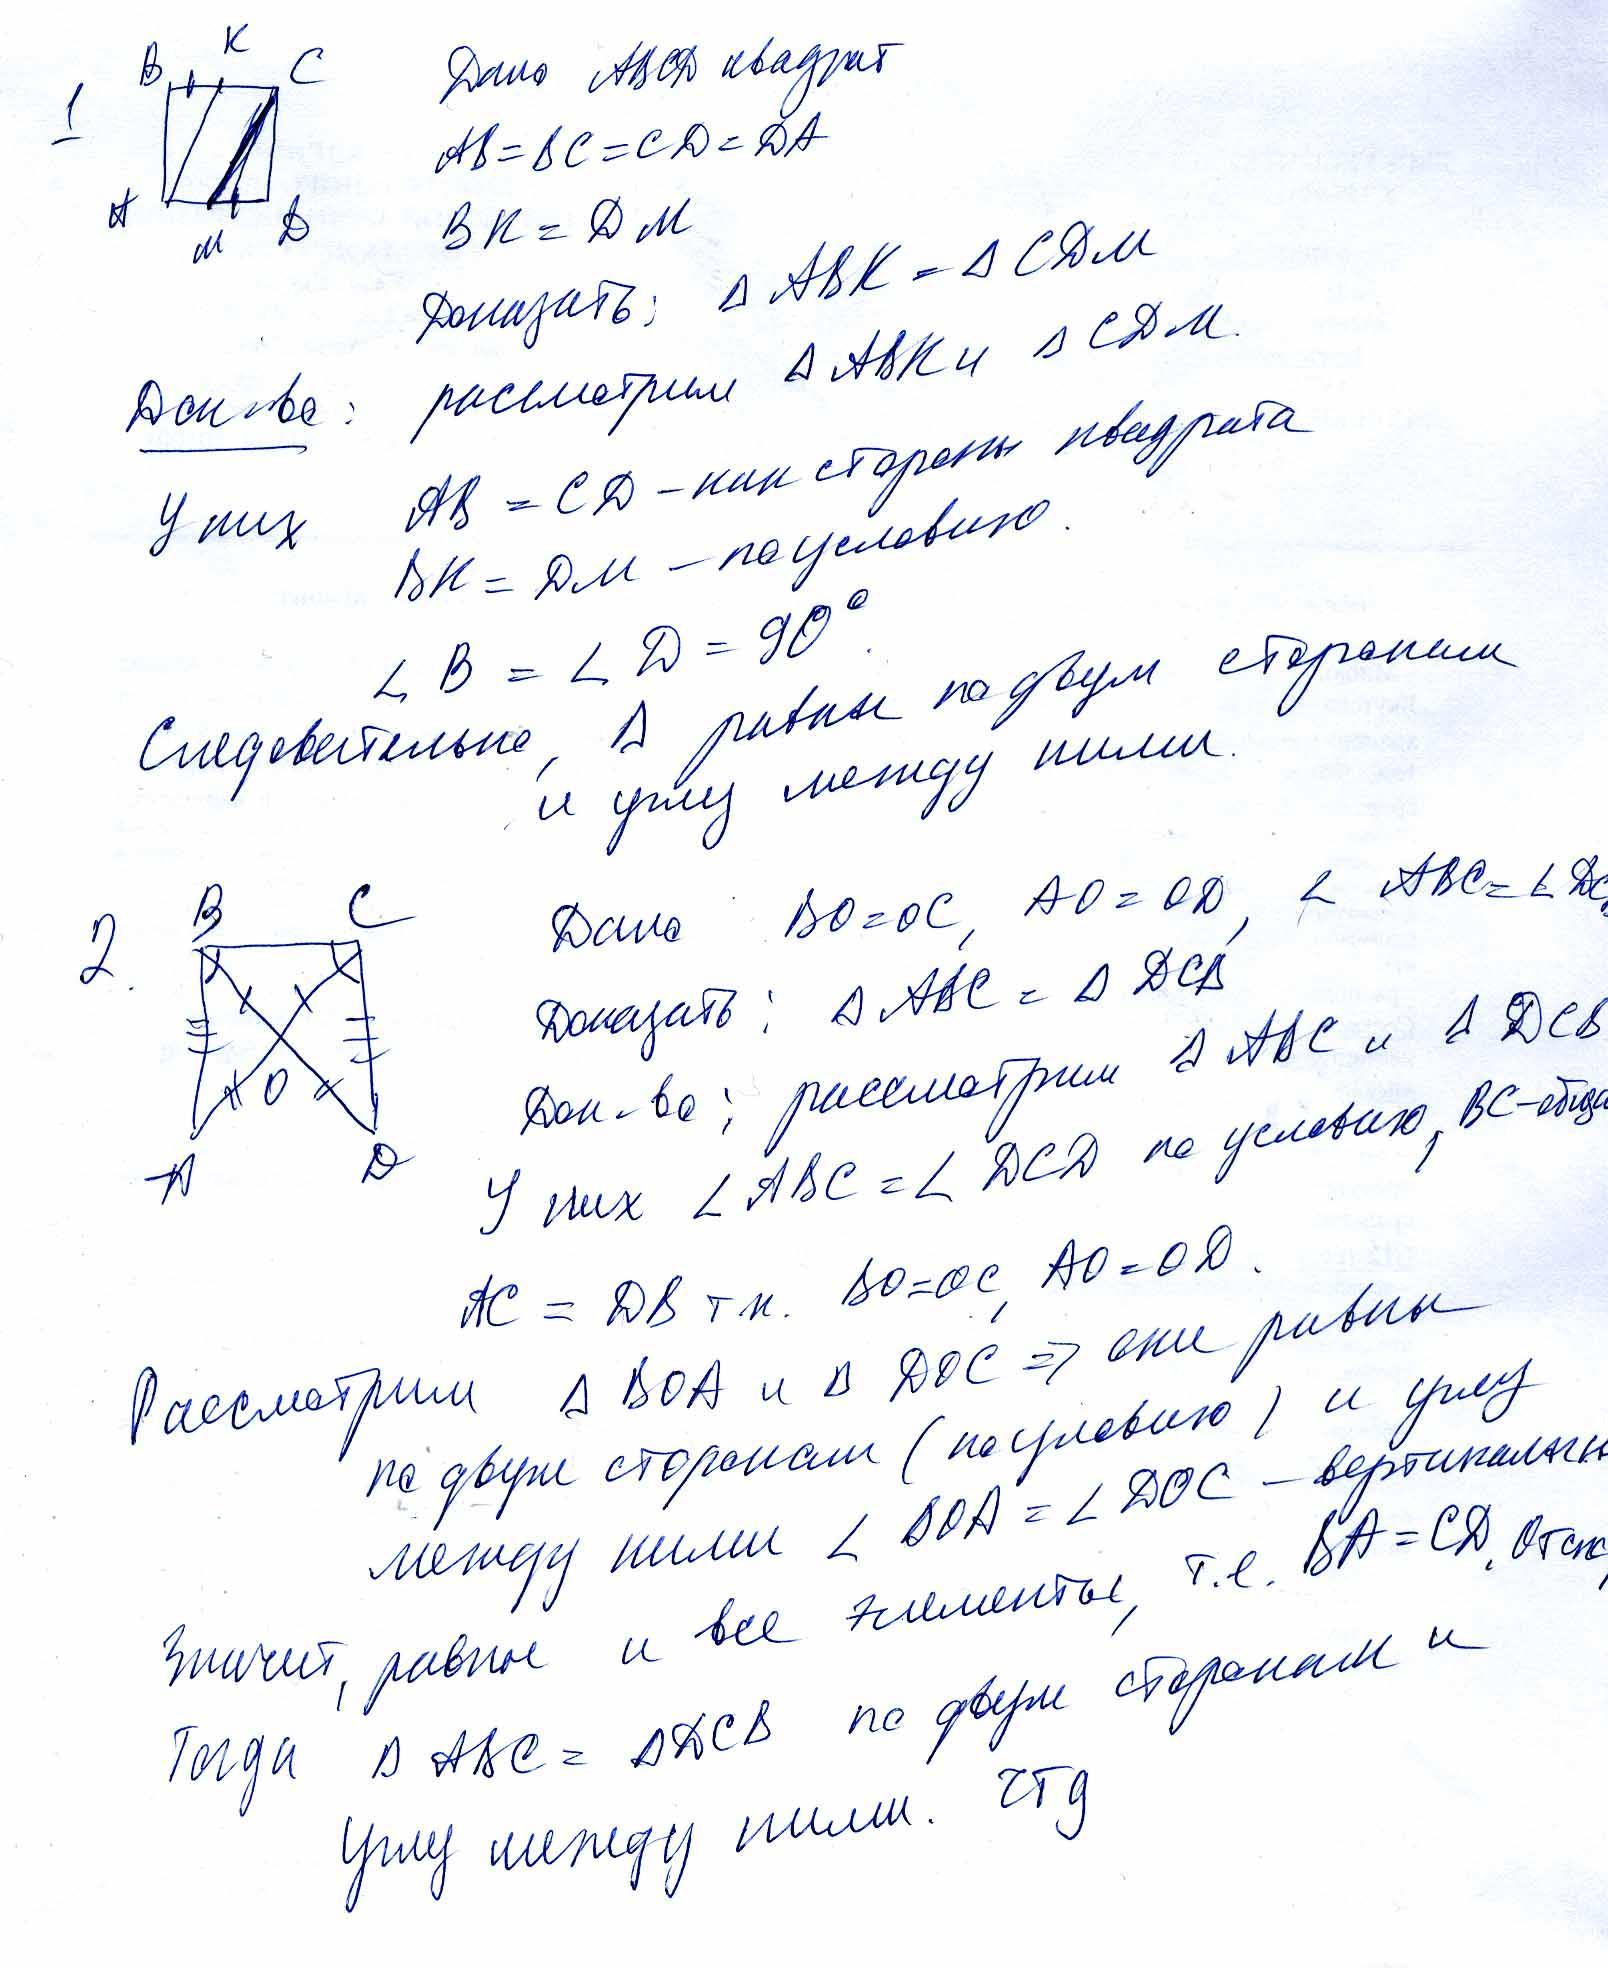 1
B K C
A M D
Дано ABCD квадрат
AB = BC = CD = DA
BK = DM
Доказать: Δ ABK = Δ CDM
Док-во: рассмотрим Δ ABK и Δ CDM.
У них AB = CD – как стороны квадрата
BK = DM – по условию.
∠ B = ∠ D = 90°.
Следовательно, Δ равны по двум сторонам
и углу между ними.
2.
B C
O
A D
Дано BO=OC, AO=OD, ∠ ABC=∠ DCB
Доказать: Δ ABC = Δ DCB
Док-во: рассмотрим Δ ABC и Δ DCB
У них ∠ ABC = ∠ DCD по условию, BC-обща
AC = DB т к. BO=OC, AO=OD.
Рассмотрим Δ BOA и Δ DOC => они равны
по двум сторонам (по условию) и углу
между ними ∠ BOA = ∠ DOC – вертикальн
Значит, равны и все элементы, т.е. BA = CD.
Тогда Δ ABC = Δ DCB по двум сторонам и
углу между ними. чтд